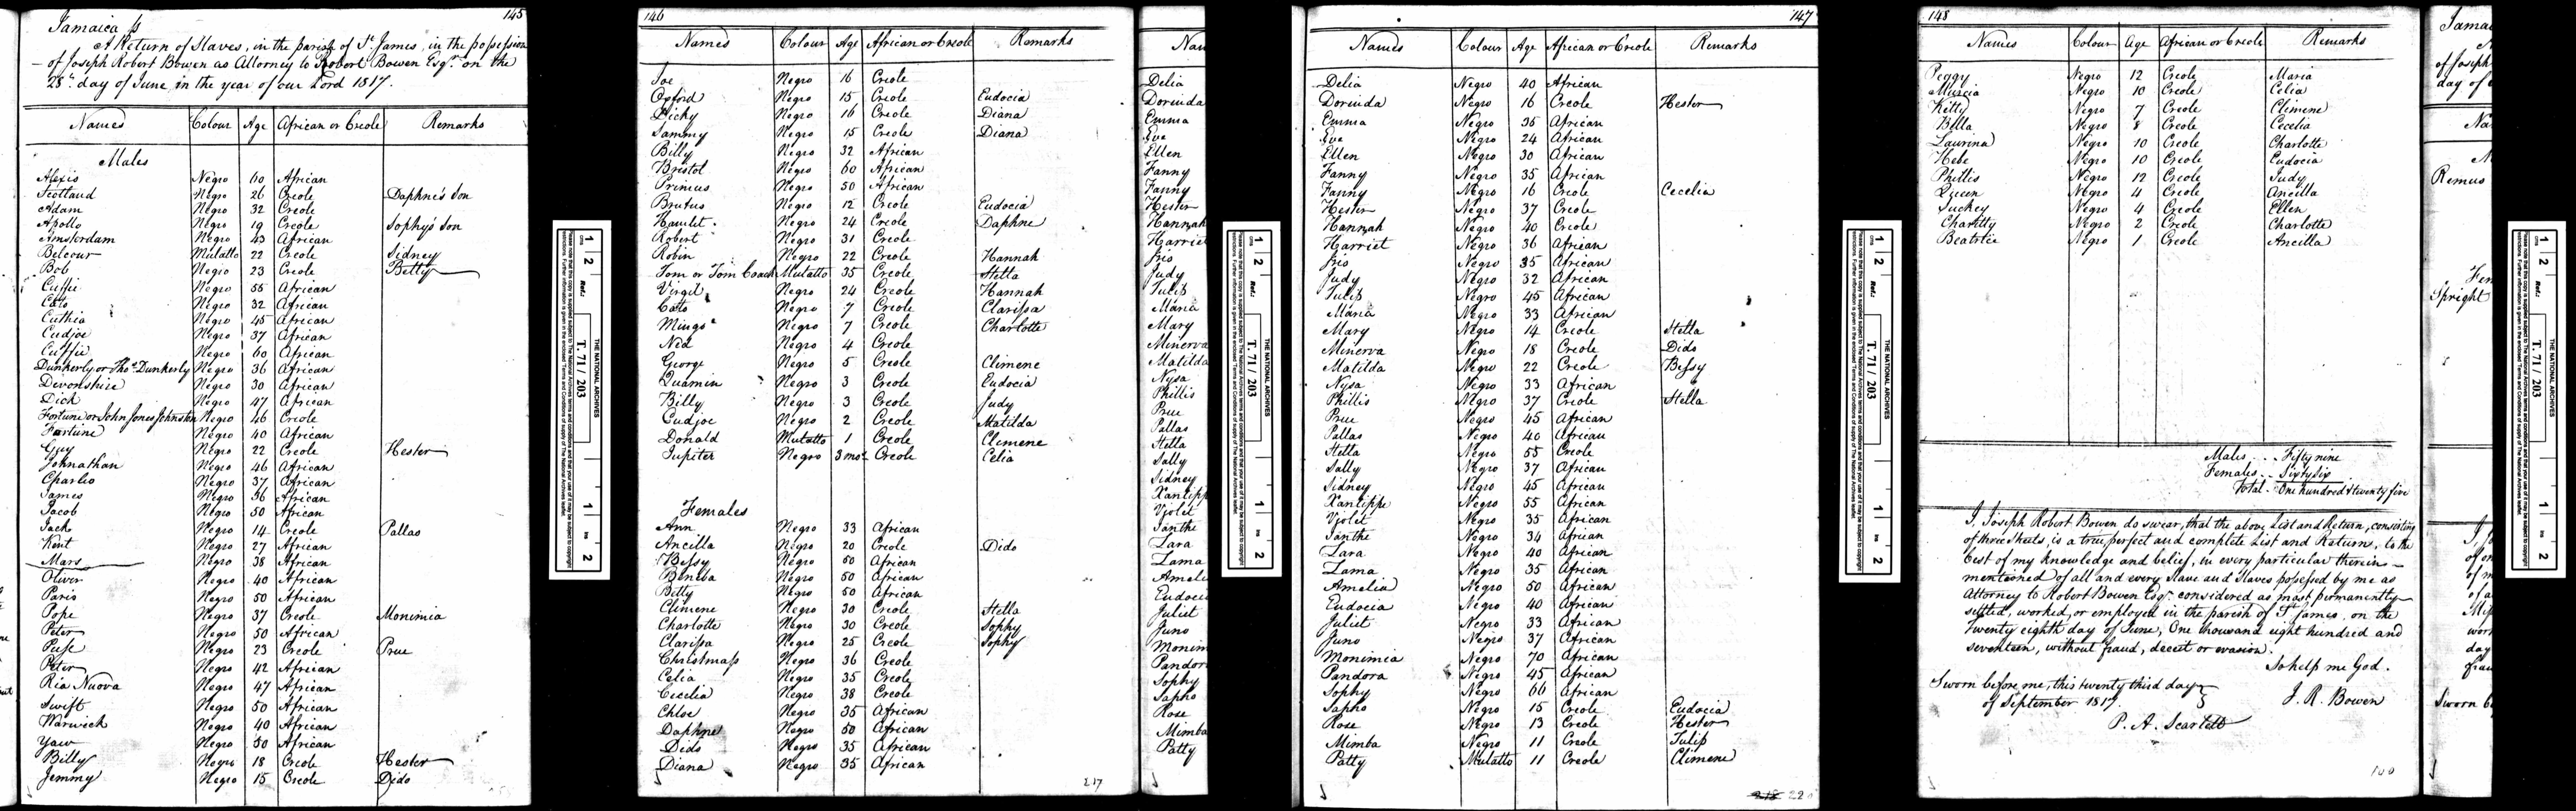 145
Jamaica ss
A Return of Slaves, in the parish of St. James, in the possession
of Joseph Robert Bowen as Attorney to Robert Bowen Esqr. on the
28th day of June in the year of our Lord 1817.
Names Colour Age African or Creole Remarks
Males
Alexis Negro 60 African
Scotland Negro 26 Creole Daphne's son
Adam Negro 32 Creole
Apollo Negro 19 Creole Sophy's son
Amsterdam Negro 43 African
Belcour Mulatto 22 Creole Sidney
Bob Negro 23 Creole Betty
Cuffie Negro 55 African
Cato Negro 32 African
Cuthia Negro 45 African
Cudjoe Negro 37 African
Cuffie Negro 60 African
Dunkerly or Thos. Dunkerly Negro 36 African
Devonshire Negro 30 African
Dick Negro 47 African
Fortune or John Jones Johnston Negro 46 Creole
Fortune Negro 40 African
Guy Negro 22 Creole Hester
Johnathan Negro 46 African
Charles Negro 37 African
James Negro 36 African
Jacob Negro 50 African
Jack Negro 14 Creole Pallas
Kent Negro 27 African
Mars Negro 38 African
Oliver Negro 40 African
Paris Negro 50 African
Pope Negro 37 Creole Monimia
Peter Negro 50 African
Puss Negro 23 Creole Prue
Peter Negro 42 African
Ria Nuova Negro 47 African
Swift Negro 50 African
Warwick Negro 40 African
Yaw Negro 50 African
Billy Negro 18 Creole Hester
Jemmy Negro 15 Creole Dido
THE NATIONAL ARCHIVES
Ref.: T. 71 / 203
146
Names Colour Age African or Creole Remarks
Joe Negro 16 Creole
Oxford Negro 15 Creole Eudocia
Dicky Negro 16 Creole Diana
Sammy Negro 15 Creole Diana
Billy Negro 32 African
Bristol Negro 60 African
Primus Negro 50 African
Brutus Negro 12 Creole Eudocia
Hamlet Negro 24 Creole Daphne
Robert Negro 31 Creole
Robin Negro 22 Creole Hannah
Tom or Tom Coach Mulatto 35 Creole Stella
Virgil Negro 24 Creole Hannah
Cato Negro 7 Creole Clarissa
Mingo Negro 7 Creole Charlotte
Ned Negro 4 Creole
George Negro 5 Creole Climene
Quamin Negro 3 Creole Eudocia
Billy Negro 3 Creole Judy
Cudjoe Negro 2 Creole Matilda
Donald Mulatto 1 Creole Climene
Jupiter Negro 3 mos. Creole Celia
Females
Ann Negro 33 African
Ancilla Negro 20 Creole Dido
Bessy Negro 60 African
Beneba Negro 50 African
Betty Negro 50 African
Climene Negro 30 Creole Stella
Charlotte Negro 30 Creole Sophy
Clarissa Negro 25 Creole Sophy
Christmass Negro 36 Creole
Celia Negro 35 Creole
Cecelia Negro 38 Creole
Chloe Negro 35 African
Daphne Negro 60 African
Dido Negro 35 African
Diana Negro 35 African
217
THE NATIONAL ARCHIVES
Ref.: T. 71 / 203
147
Names Colour Age African or Creole Remarks
Delia Negro 40 African
Dorinda Negro 16 Creole Hester
Emma Negro 35 African
Eve Negro 24 African
Ellen Negro 30 African
Fanny Negro 35 African
Fanny Negro 16 Creole Cecelia
Hester Negro 37 Creole
Hannah Negro 40 Creole
Harriet Negro 36 African
Iris Negro 35 African
Judy Negro 32 African
Tulip Negro 45 African
Maria Negro 33 African
Mary Negro 14 Creole Stella
Minerva Negro 18 Creole Dido
Matilda Negro 22 Creole Bessy
Nysa Negro 33 African
Phillis Negro 37 Creole Stella
Prue Negro 45 African
Pallas Negro 40 African
Stella Negro 55 Creole
Sally Negro 37 African
Sidney Negro 45 African
Xantippe Negro 55 African
Violet Negro 35 African
Ianthe Negro 34 African
Zara Negro 40 African
Zama Negro 35 African
Amelia Negro 50 African
Eudocia Negro 40 African
Juliet Negro 33 African
Juno Negro 37 African
Monimia Negro 70 African
Pandora Negro 45 African
Sophy Negro 66 African
Sapho Negro 15 Creole Eudocia
Rose Negro 13 Creole Hester
Mimba Negro 11 Creole Tulip
Patty Mulatto 11 Creole Climene
THE NATIONAL ARCHIVES
Ref.: T. 71 / 203
148
Names Colour Age African or Creole Remarks
Peggy Negro 12 Creole Maria
Murcia Negro 10 Creole Celia
Kitty Negro 7 Creole Climene
Bella Negro 8 Creole Cecelia
Laurina Negro 10 Creole Charlotte
Hebe Negro 10 Creole Eudocia
Phillis Negro 12 Creole Judy
Queen Negro 4 Creole Ancilla
Suckey Negro 4 Creole Ellen
Chartilly Negro 2 Creole Charlotte
Beatrice Negro 1 Creole Ancilla
Males . . . Fifty nine
Females . . Sixty six
Total . One hundred & twenty five
I, Joseph Robert Bowen do swear, that the above List and Return, consisting
of three Sheets, is a true, perfect and complete List and Return, to the
best of my knowledge and belief, in every particular therein
mentioned of all and every Slave and Slaves possessed by me as
Attorney to Robert Bowen Esqr. considered as most permanently
settled, worked, or employed in the parish of St. James, on the
Twenty eighth day of June, One thousand eight hundred and
seventeen, without fraud, deceit or evasion.
So help me God.
Sworn before me, this twenty third day
of September 1817.
J. R. Bowen
P. A. Scarlett
THE NATIONAL ARCHIVES
Ref.: T. 71 / 203